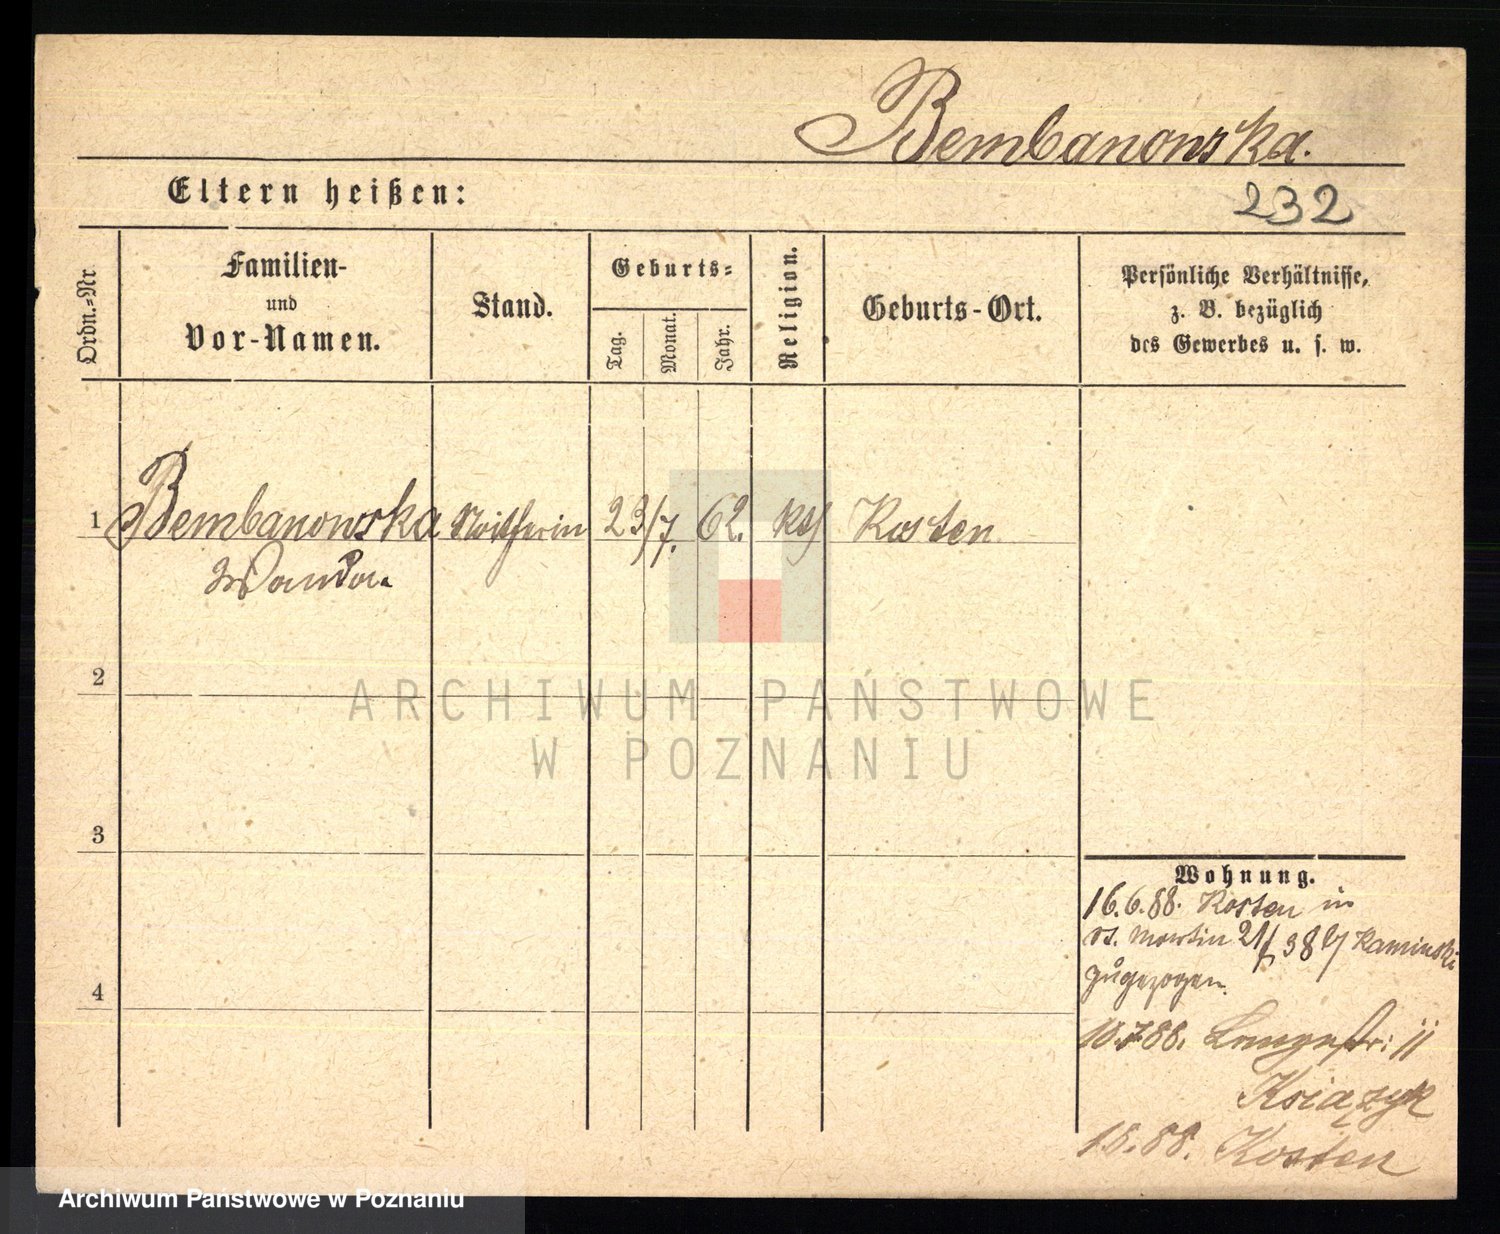 Bembanowska.
Eltern heißen:
232
Ordn.-Nr.
Familien-
und
Vor-Namen.
Stand.
Geburts-
Tag.
Monat.
Jahr.
Religion.
Geburts-Ort.
Persönliche Verhältnisse,
z. B. bezüglich
des Gewerbes u. s. w.
1 Bembanowska 23/7. 62. Kosten
Wanda.
2
ARCHIWUM PAŃSTWOWE
W POZNANIU
3
4
Wohnung.
16.6.88. Kosten in
St. Martin 21/ 38 Kaminski
zugezogen.
10.7.88. Langestr: 11
Książyk
1.8.88. Kosten
Archiwum Państwowe w Poznaniu